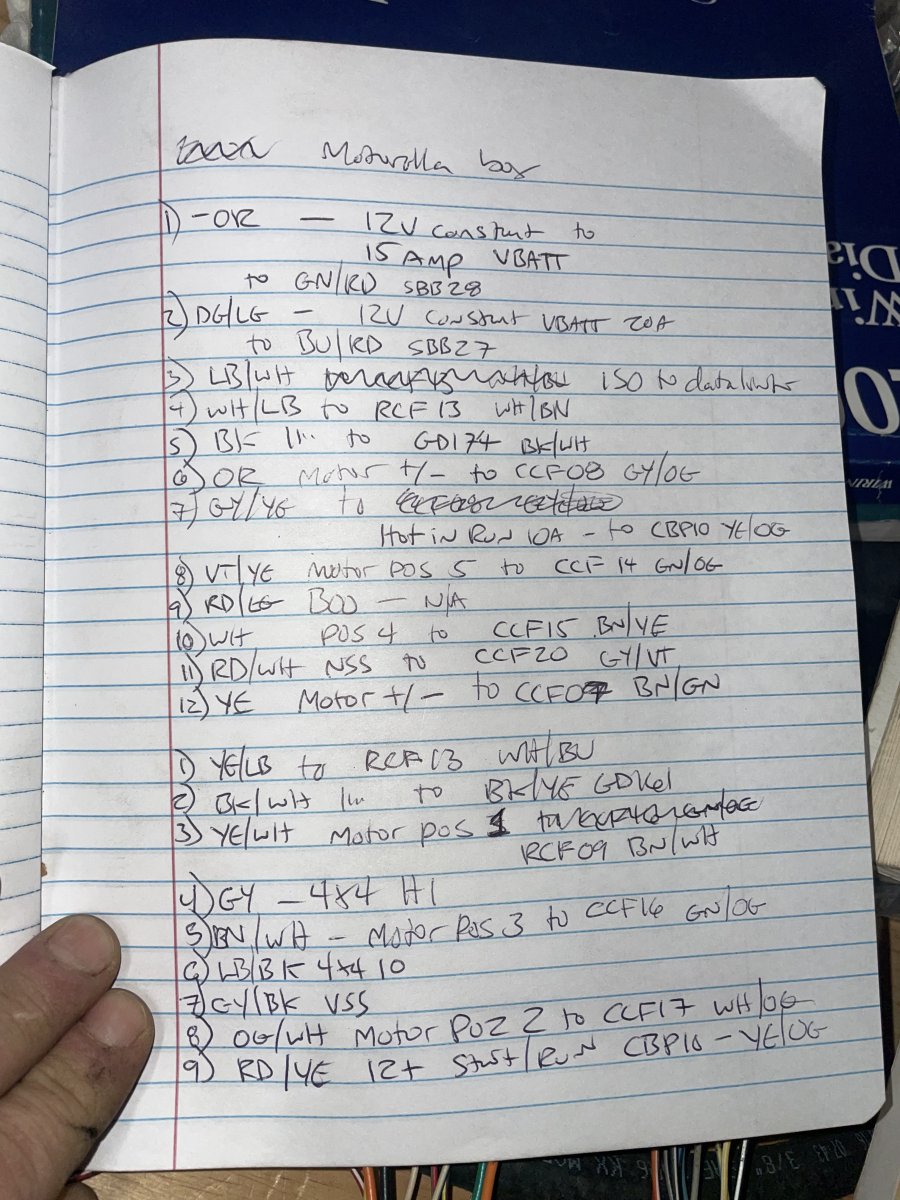 Motorolla box
1) - OR — 12V constant to
15 AMP VBATT
to GN/RD SBB28
2) DG/LG - 12V constant VBATT 20A
to BU/RD SBB27
3) LB/WH ISO to datalinks
4) WH/LB to RCF13 WH/BN
5) BK to GD174 BK/WH
6) OR Motor +/- to CCF08 GY/OG
7) GY/YE to
Hot in Run 10A - to CBP10 YE/OG
8) VT/YE Motor POS 5 to CCF14 GN/OG
9) RD/LG BOO — N/A
10) WH POS 4 to CCF15 BN/YE
11) RD/WH NSS to CCF20 GY/VT
12) YE Motor +/- to CCF07 BN/GN
1) YE/LB to RCF13 WH/BU
2) BK/WH to BK/YE GD161
3) YE/WH Motor POS 1
RCF09 BN/WH
4) GY - 4x4 HI
5) BN/WH - Motor POS 3 to CCF16 GN/OG
6) LB/BK 4x4 10
7) GY/BK VSS
8) OG/WH Motor POZ 2 to CCF17 WH/OG
9) RD/YE 12+ Start/Run CBP10 - YE/OG
WIRIN